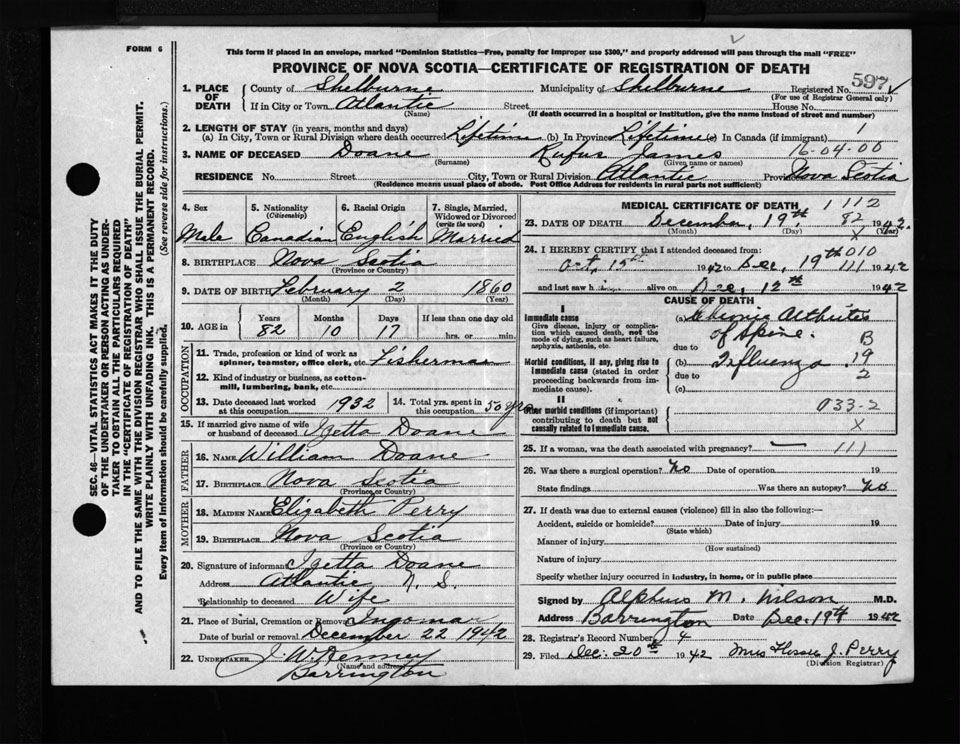 FORM 6
This form if placed in an envelope, marked "Dominion Statistics—Free, penalty for improper use $300," and properly addressed will pass through the mail "FREE"
PROVINCE OF NOVA SCOTIA—CERTIFICATE OF REGISTRATION OF DEATH
597
1. PLACE OF DEATH County of Shelburne Municipality of Shelburne Registered No.
(For use of Registrar General only)
If in City or Town Atlantic Street House No.
(Name) (If death occurred in hospital or institution, give the name instead of street and number)
2. LENGTH OF STAY (in years, months and days)
(a) In City, Town or Rural Division where death occurred Lifetime (b) In Province Lifetime (c) In Canada (if immigrant) 1
3. NAME OF DECEASED Doane Rufus James 16-04-00
(Surname) (Given name or names)
RESIDENCE No. Street City, Town or Rural Division Atlantic Province Nova Scotia
(Residence means usual place of abode. Post Office Address for residents in rural parts not sufficient)
4. Sex Male
5. Nationality (Citizenship) Canadian
6. Racial Origin English
7. Single, Married, Widowed or Divorced (write the word) Married
8. BIRTHPLACE Nova Scotia
(Province or Country)
9. DATE OF BIRTH February 2 1860
(Month) (Day) (Year)
10. AGE in Years 82 Months 10 Days 17 If less than one day old hrs. or min.
OCCUPATION
11. Trade, profession or kind of work as spinner, teamster, office clerk, etc. Fisherman
12. Kind of industry or business, as cotton-mill, lumbering, bank, etc.
13. Date deceased last worked at this occupation 1932
14. Total yrs. spent in this occupation 50 yrs
15. If married give name of wife or husband of deceased Izetta Doane
FATHER
16. Name William Doane
17. Birthplace Nova Scotia
(Province or Country)
MOTHER
18. Maiden Name Elizabeth Perry
19. Birthplace Nova Scotia
(Province or Country)
20. Signature of informant Izetta Doane
Address Atlantic N. S.
Relationship to deceased Wife
21. Place of Burial, Cremation or Removal Ingomar
Date of burial or removal December 22 1942
22. UNDERTAKER J. W. Kenney
(Name and address)
Barrington
MEDICAL CERTIFICATE OF DEATH 1112
23. DATE OF DEATH December, 19th 82 1942.
(Month) (Day) X (Year)
24. I HEREBY CERTIFY that I attended deceased from: 010
Oct, 15th 1942 to Dec, 19th 111 1942
and last saw him alive on Dec, 12th 1942
CAUSE OF DEATH
I
Immediate cause
Give disease, injury or complication which caused death, not the mode of dying, such as heart failure, asphyxia, asthenia, etc.
(a) Chronic Arthrites
of spine. B
due to
Morbid conditions, if any, giving rise to immediate cause (stated in order proceeding backwards from immediate cause).
(b) Influenza 19
due to 2
(c)
II
Other morbid conditions (if important) contributing to death but not causally related to immediate cause.
033-2
X
25. If a woman, was the death associated with pregnancy? — 111
26. Was there a surgical operation? No Date of operation 19
State findings Was there an autopsy? No
27. If death was due to external causes (violence) fill in also the following:—
Accident, suicide or homicide? Date of injury 19
(State which)
Manner of injury
(How sustained)
Nature of injury
Specify whether injury occurred in industry, in home, or in public place
Signed by Alphius M. Wilson M.D.
Address Barrington Date Dec. 19th 1942
28. Registrar's Record Number 4
29. Filed Dec: 20th 1942 Mrs Flossie J. Perry
(Division Registrar)
SEC. 46—VITAL STATISTICS ACT MAKES IT THE DUTY
OF THE UNDERTAKER OR PERSON ACTING AS UNDER-
TAKER TO OBTAIN ALL THE PARTICULARS REQUIRED
IN THE "CERTIFICATE OF REGISTRATION OF DEATH"
AND TO FILE THE SAME WITH THE DIVISION REGISTRAR WHO SHALL ISSUE THE BURIAL PERMIT.
WRITE PLAINLY WITH UNFADING INK. THIS IS A PERMANENT RECORD.
Every item of information should be carefully supplied. (See reverse side for instructions.)